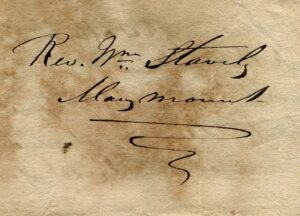 Rev. Wm. Stavely
Marymount